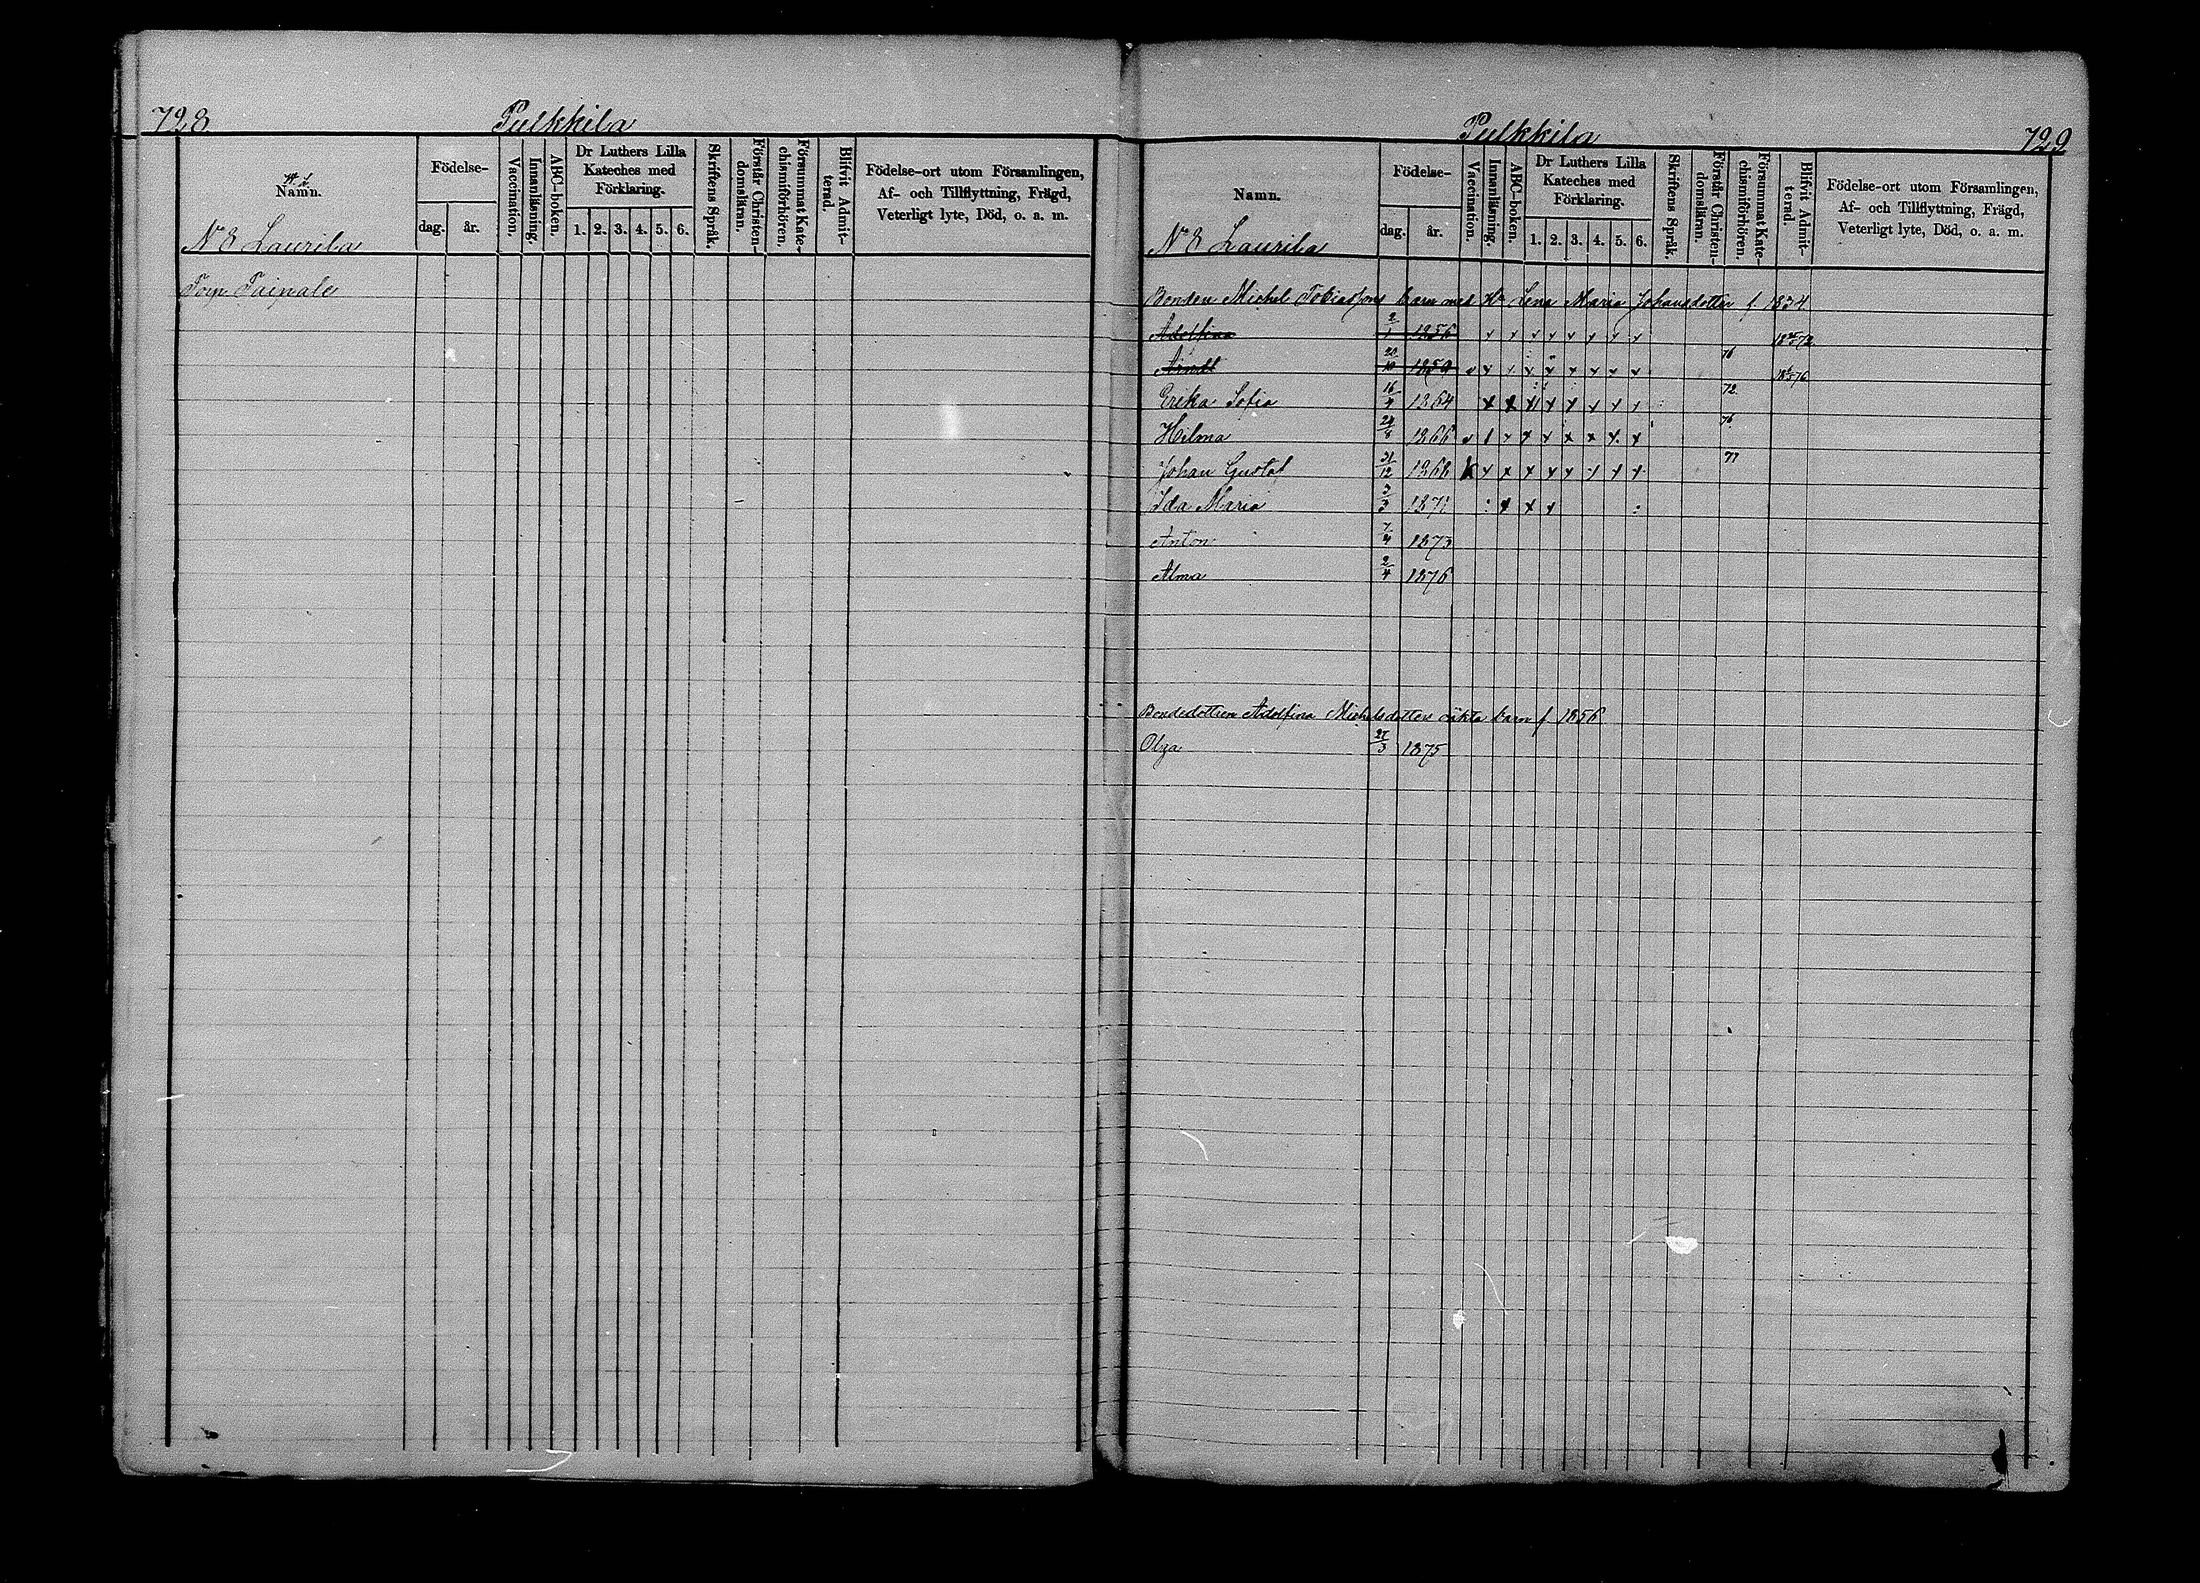 728
Pulkkila
Namn.
Födelse-
dag. år.
Vaccination.
Innanläsning.
ABC-boken.
Dr Luthers Lilla
Kateches med
Förklaring.
1. 2. 3. 4. 5. 6.
Skriftens Språk.
Förstår Christen-
domsläran.
Försummat Kate-
chismiförhören.
Blifvit Admit-
terad.
Födelse-ort utom Församlingen,
Af- och Tillflyttning, Frägd,
Veterligt lyte, Död, o. a. m.
N 8 Laurila
Torp Taipale
Pulkkila
729
Namn.
Födelse-
dag. år.
Vaccination.
Innanläsning.
ABC-boken.
Dr Luthers Lilla
Kateches med
Förklaring.
1. 2. 3. 4. 5. 6.
Skriftens Språk.
Förstår Christen-
domsläran.
Försummat Kate-
chismiförhören.
Blifvit Admit-
terad.
Födelse-ort utom Församlingen,
Af- och Tillflyttning, Frägd,
Veterligt lyte, Död, o. a. m.
N 8 Laurila
Bonden Michel Tobiassons barn med Hu Lena Maria Johansdotter f. 1834
Adolfina 2/1 1856
20/10 1859 76
Erika Sofia 16/4 1864 72
Hilma 24/8 1866 76
Johan Gustaf 31/12 1868 77
Ida Maria 3/3 1871
Anton 7/4 1873
Alma 2/4 1876
Bondedottren Adolfina Michelsdotters oäkta barn f 1856
Olga 27/3 1875